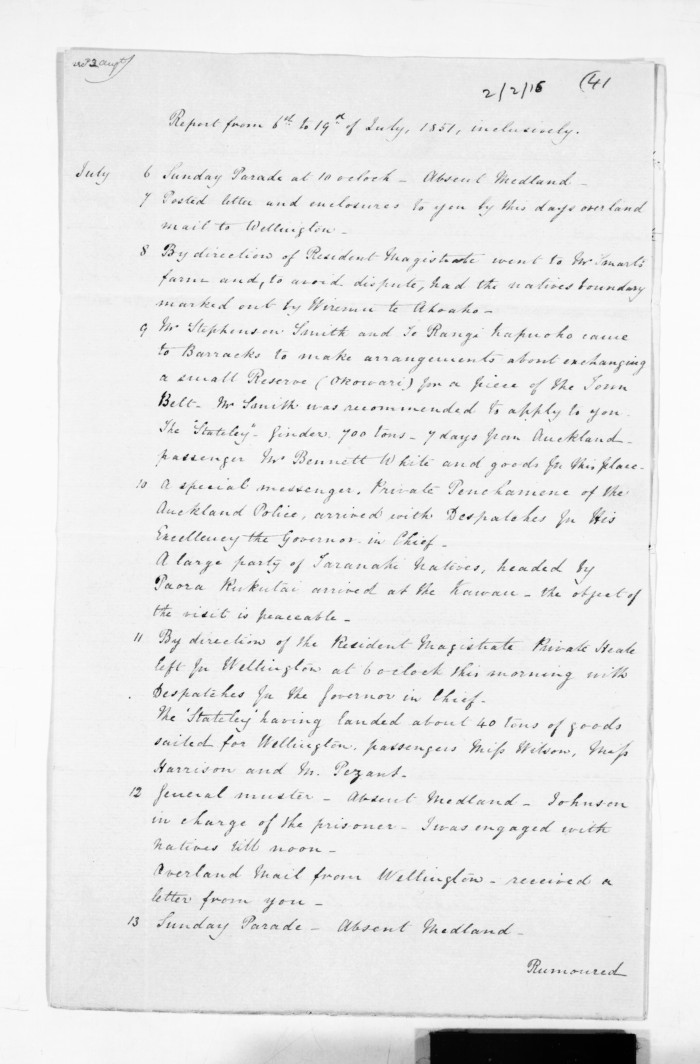 recd 2 Augt
2/2/16
(41
Report from 6th to 19th of July, 1851, inclusively.
July 6 Sunday Parade at 10 oclock - Absent Medland -
7 Posted letter and enclosures to you by this days overland
mail to Wellington -
8 By direction of Resident Magistrate went to Mr Smart's
farm and, to avoid dispute, had the natives boundary
marked out by Wiremu te Ahoaho -
9 Mr Stephenson Smith and Te Rangi hapuoho came
to Barracks to make arrangements about exchanging
a small Reserve (Okowari) for a piece of the Town
Belt - Mr Smith was recommended to apply to you.
The "Stateley" - Ginder. 700 tons - 7 days from Auckland -
passenger Mr Bennett White and goods for this place -
10 A special messenger, Private Penchamene of the
Auckland Police, arrived with Despatches for His
Excellency the Governor in Chief -
A large party of Taranaki Natives, headed by
Paora Kukutai arrived at the Kawau - the object of
the visit is peaceable -
11 By direction of the Resident Magistrate Private Heale
left for Wellington at 6 oclock this morning with
Despatches for the Governor in Chief -
The 'Stateley' having landed about 40 tons of goods
sailed for Wellington. passengers Miss Wilson, Miss
Harrison and M. Pezant -
12 General muster - Absent Medland - Johnson
in charge of the prisoner - I was engaged with
Natives till noon -
Overland Mail from Wellington - received a
letter from you -
13 Sunday Parade - Absent Medland -
Rumoured